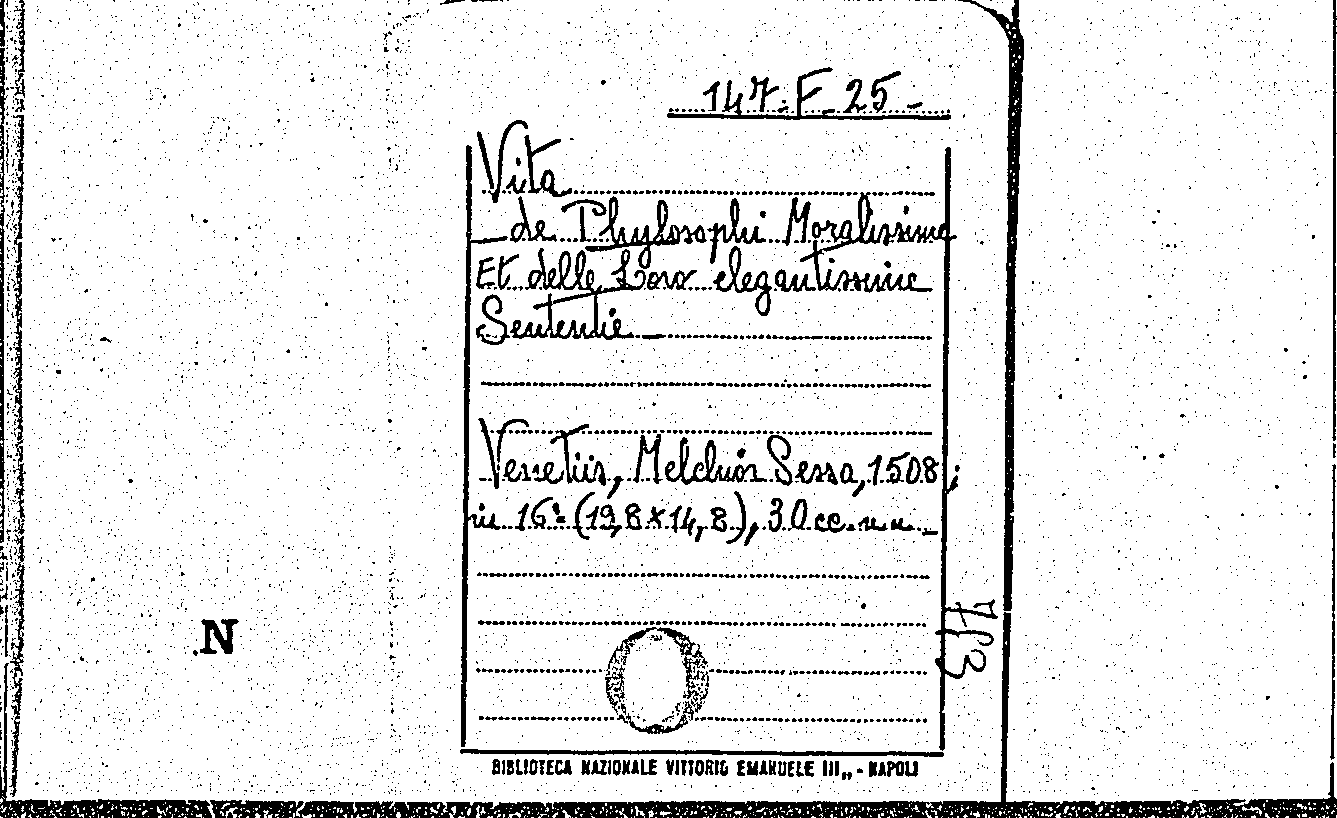 147. F. 25 -
Vita
_ de Phylosophi Moralissima
Et delle Loro elegantissime
Sententie _
Venetiis, Melchiòr Sessa, 1508;
in 16° (19,8 x 14,8), 30 cc. n. n. _
N
BIBLIOTECA NAZIONALE VITTORIO EMANUELE III,, - NAPOLI